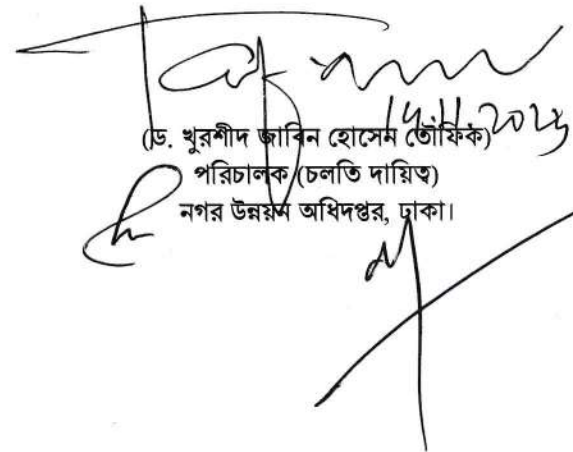 (ড. খুরশীদ জাবিন হোসেন তৌফিক)
পরিচালক (চলতি দায়িত্ব)
নগর উন্নয়ন অধিদপ্তর, ঢাকা।